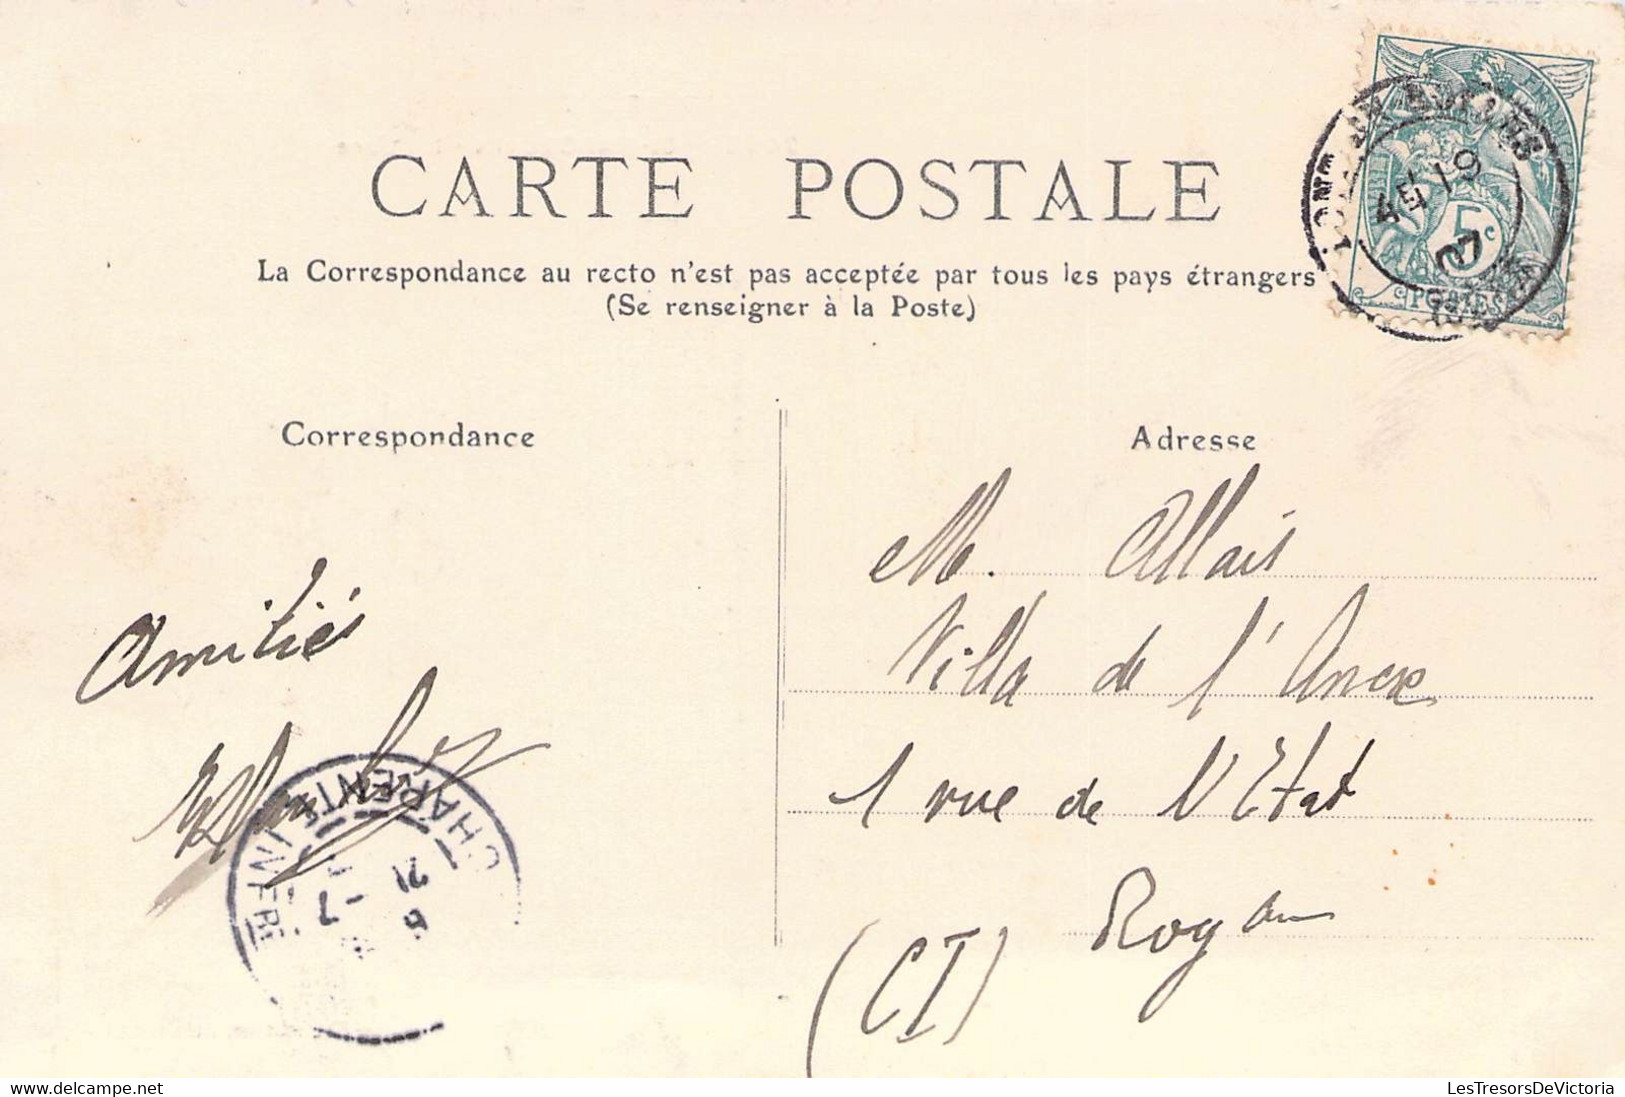 CARTE POSTALE
La Correspondance au recto n'est pas acceptée par tous les pays étrangers
(Se renseigner à la Poste)
Correspondance
Adresse
M. Allais
Villa de l'Ancre
1 rue de l'Etat
Royan
(CI)
Amitiés
5c
POSTES
19
07
CHARENTE INFRE
21
LesTresorsDeVictoria